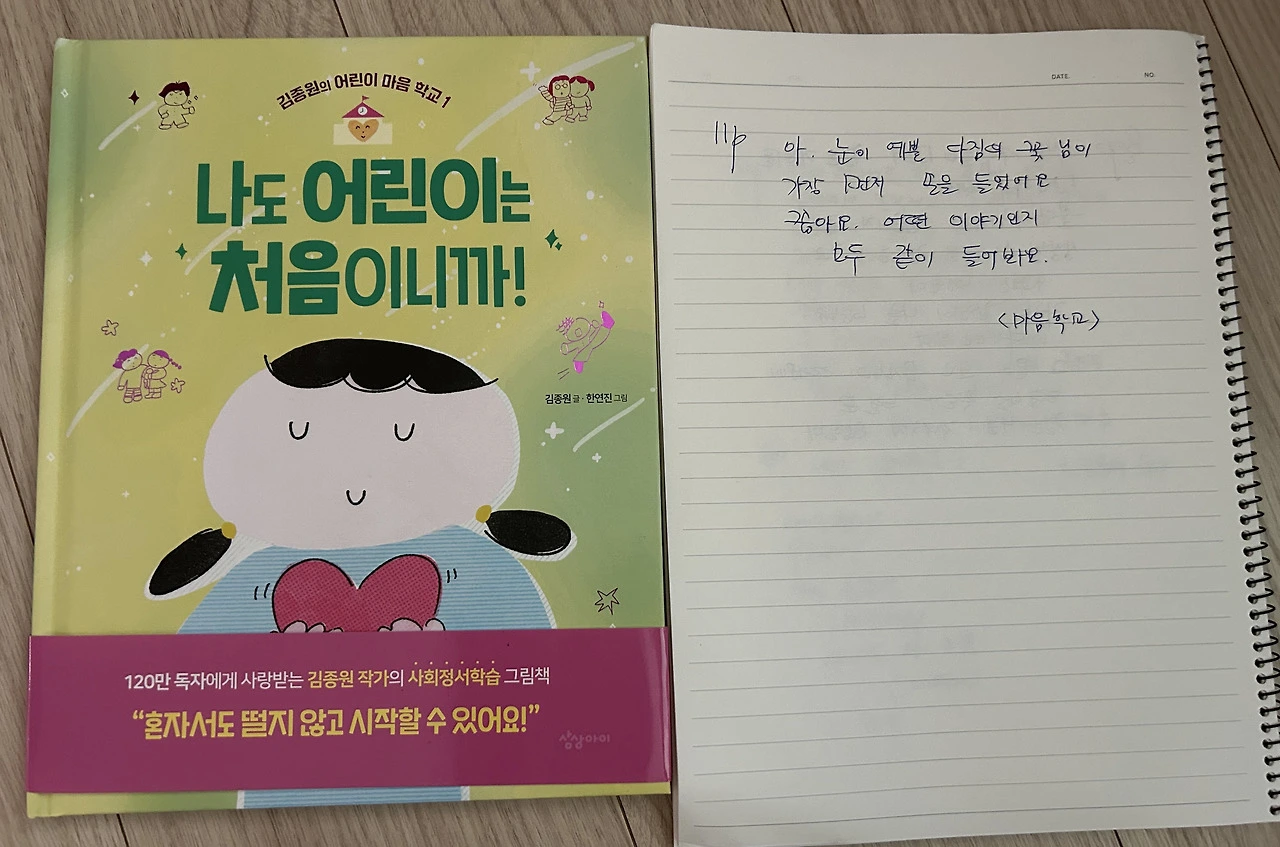 김종원의 어린이 마음 학교 1
나도 어린이는
처음이니까!
김종원 글 · 한연진 그림
120만 독자에게 사랑받는 김종원 작가의 사회정서학습 그림책
“혼자서도 떨지 않고 시작할 수 있어요!”
상상아이
DATE.
NO.
11p
아. 눈이 예쁠 다짐의 꽃 님이
가장 먼저 손을 들었어요
좋아요. 어떤 이야기인지
모두 같이 들어봐요.
<마음학교>